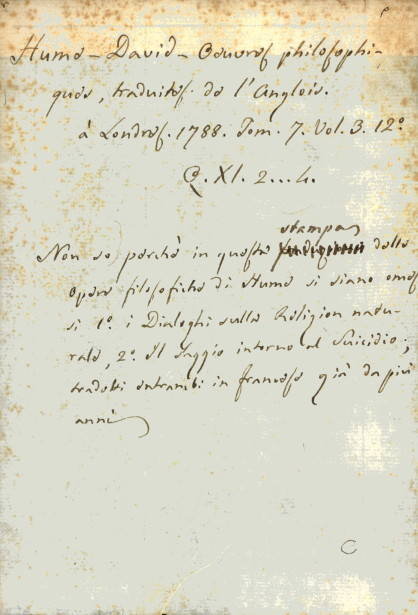 Hume - David - Oeuvres philosophi-
ques, traduites de l'Anglois.
à Londres. 1788. Tom. 7. Vol. 3. 12°
Q. XI. 2...4.
stampa
Non so perchè in questa delle
Opere filosofiche di Hume si siano omes
si 1°. i Dialoghi sulla Religion natu-
rale, 2°. Il Saggio intorno al Suicidio;
tradotti entrambi in francese già da più
anni
C